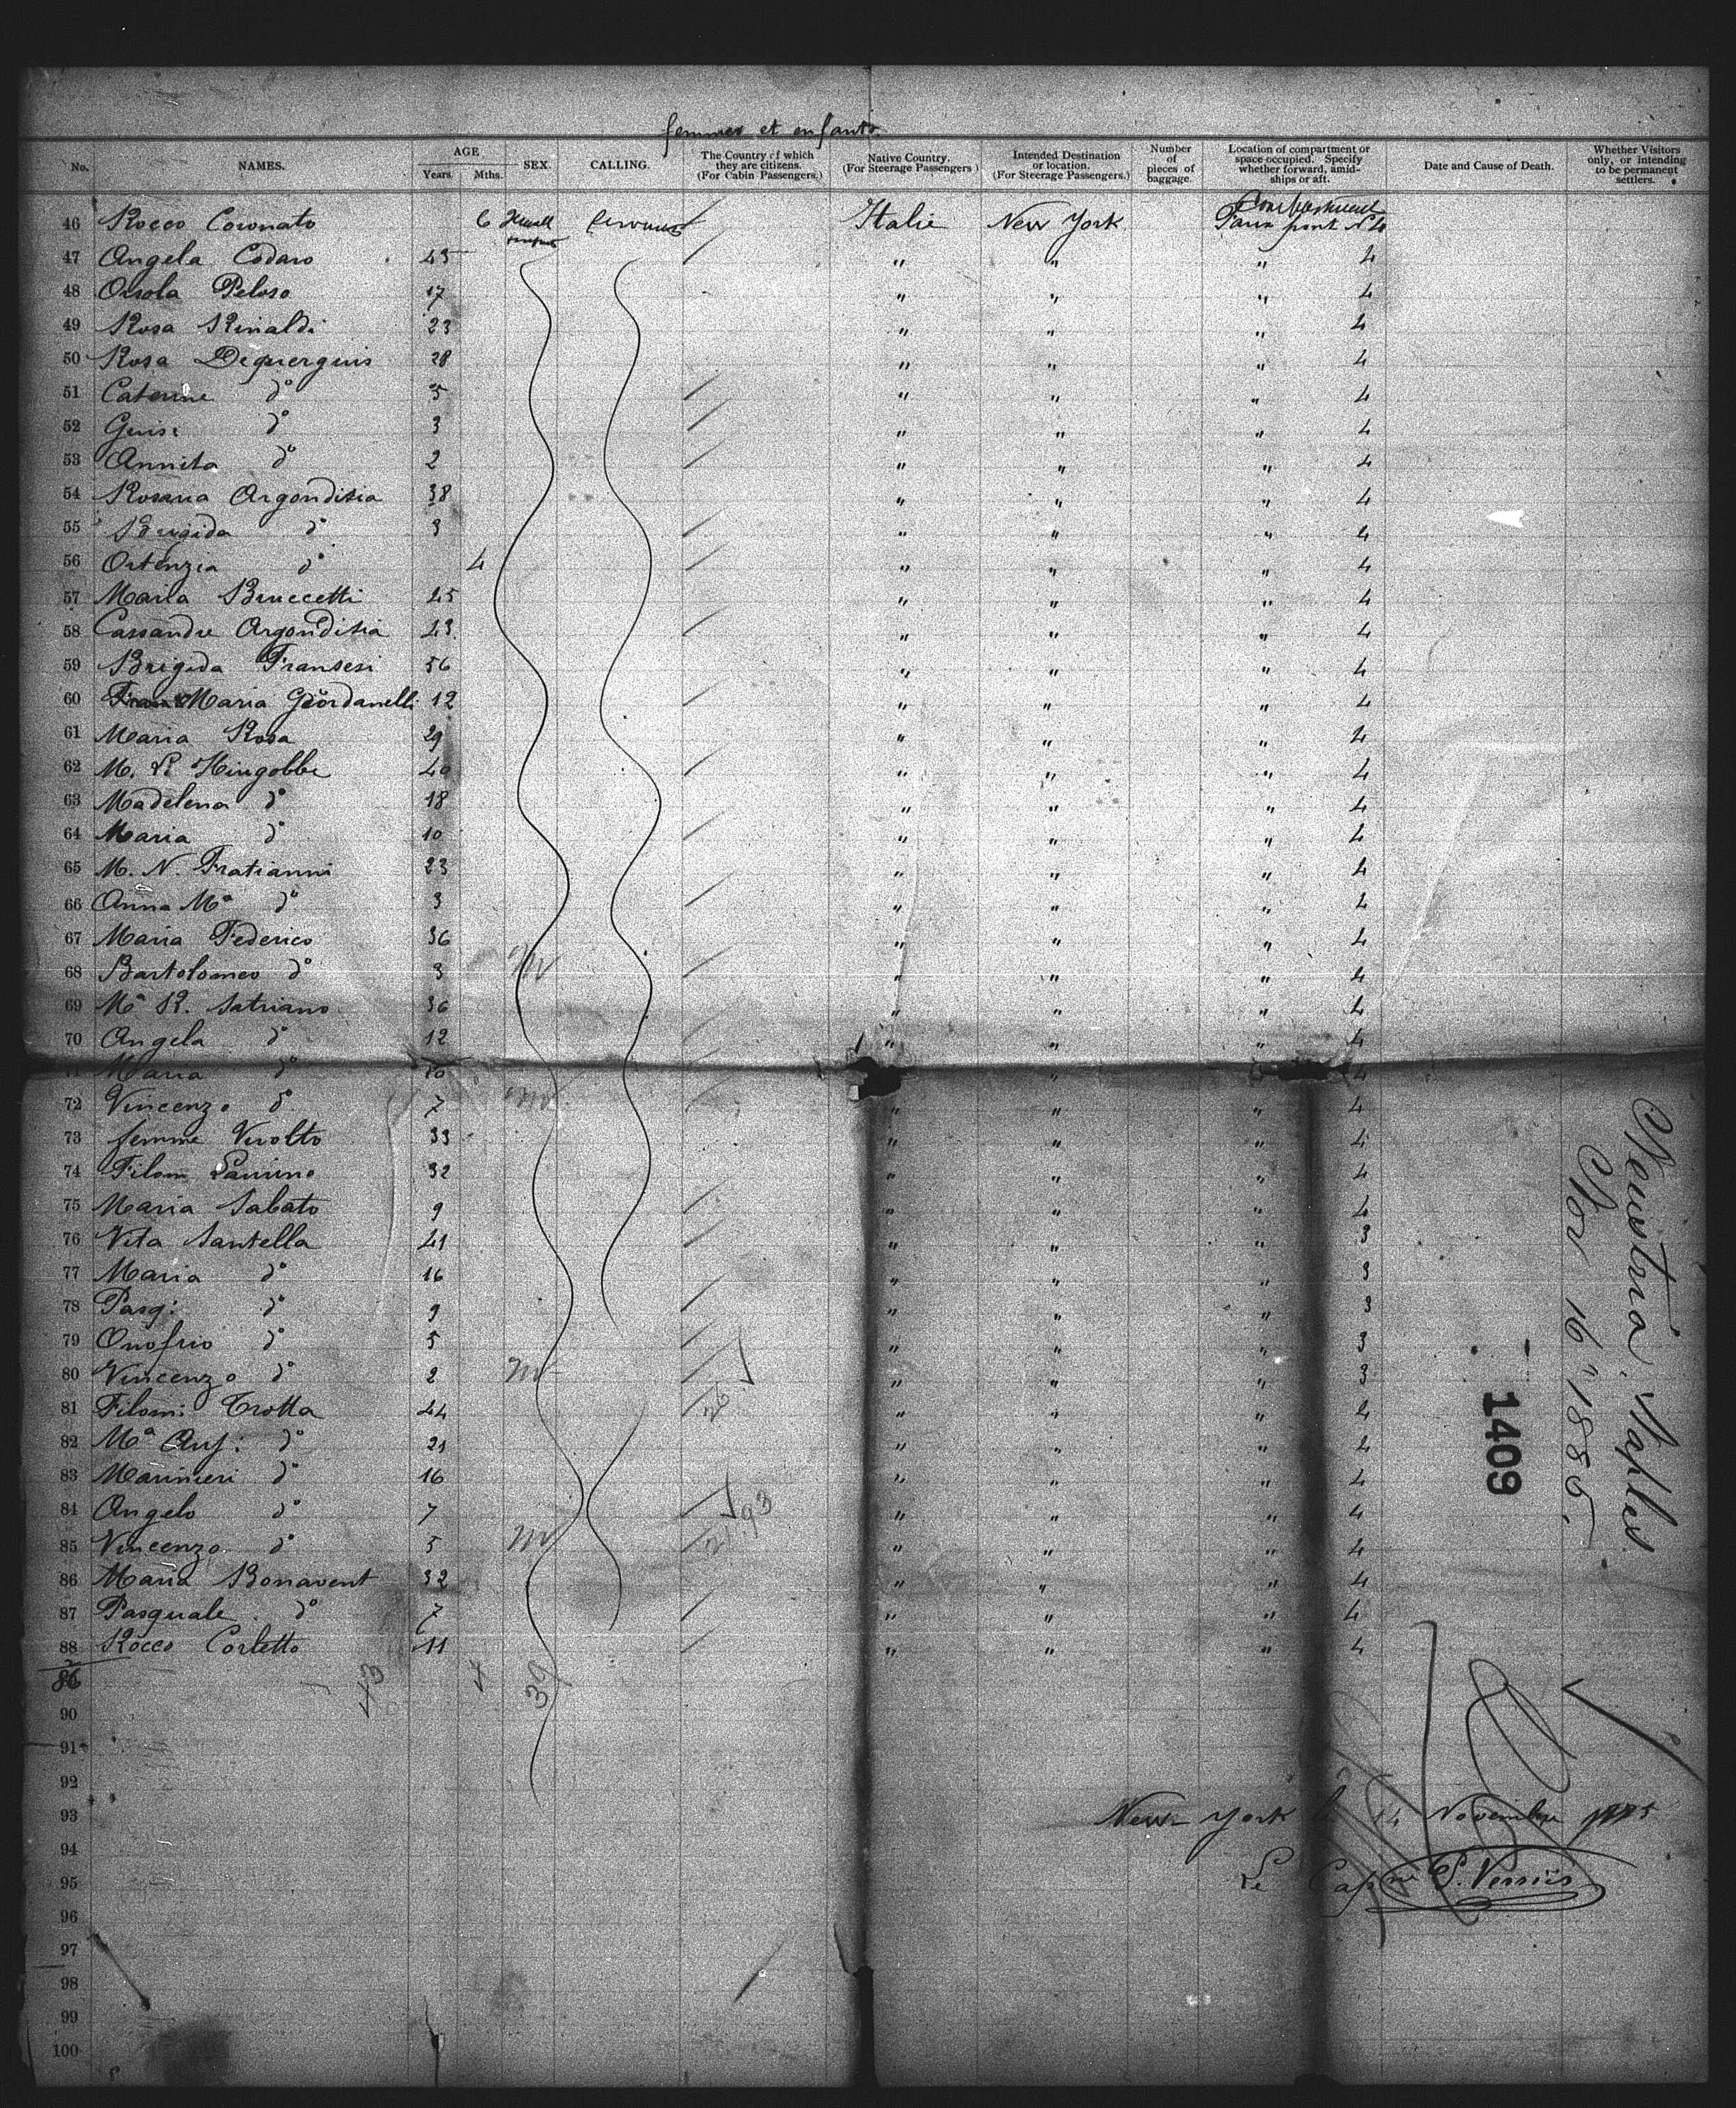 femmes et enfants
No. NAMES. AGE Years Mths. SEX. CALLING. The Country of which they are citizens. (For Cabin Passengers.) Native Country. (For Steerage Passengers) Intended Destination or location. (For Steerage Passengers.) Number of pieces of baggage. Location of compartment or space occupied. Specify whether forward, amidships or aft. Date and Cause of Death. Whether Visitors only, or intending to be permanent settlers.
46 Rocco Coronato 6 Italie New York Compartment Faux pont N 4
47 Angela Codaro 45 " " " 4
48 Orsola Peloso 17 " " " 4
49 Rosa Rinaldi 23 " " " 4
50 Rosa 28 " " " 4
51 Caterine do 5 " " " 4
52 do 3 " " " 4
53 Annita do 2 " " " 4
54 Rosaria Argondisia 38 " " " 4
55 Brigida do 3 " " " 4
56 Ortenzia do 4 " " " 4
57 Maria Bruccetti 45 " " " 4
58 Cassandre Argondisia 43 " " " 4
59 Brigida Fransesi 56 " " " 4
60 Maria Giordanelli 12 " " " 4
61 Maria Rosa 29 " " " 4
62 M. Hingobbe 40 " " " 4
63 Madelena do 18 " " " 4
64 Maria do 10 " " " 4
65 M. N. Fratianni 23 " " " 4
66 Anna Ma do 3 " " " 4
67 Maria Federico 36 " " " 4
68 Bartolomeo do 3 m " " " 4
69 Ma R. Satriano 36 " " " 4
70 Angela do 12 " " " 4
71 Maria do 10 " " 4
72 Vincenzo do 7 m " " " 4
73 femme Virolto 33 " " " 4
74 Filom 32 " " " 4
75 Maria Sabato 9 " " " 4
76 Vita Santella 41 " " " 3
77 Maria do 16 " " " 3
78 Pasq: do 9 " " " 3
79 Onofrio do 5 " " " 3
80 Vincenzo do 2 m " " " 3
81 Filom: Trotta 44 26 " " " 4
82 Ma do 21 " " " 4
83 Marinieri do 16 " " " 4
84 Angelo do 7 93 " " " 4
85 Vincenzo do 5 m 21 " " " 4
86 Maria Bonavent 32 " " " 4
87 Pasquale do 7 " " " 4
88 Rocco Corletto 11 " " " 4
86 43 4 39
90
91
92
93 New York le 14 Novembre 1885
94
95 Le Capne
96
97
98
99
100
Neustria, Naples
Nov 16" 1885.
1409